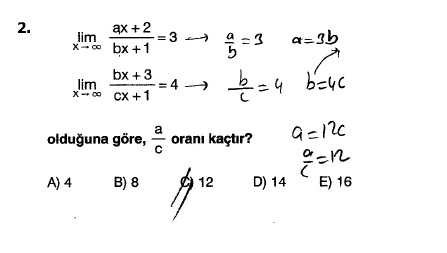 2.
lim x→∞ (ax + 2)/(bx + 1) = 3 → a/b = 3 a = 3b
lim x→∞ (bx + 3)/(cx + 1) = 4 → b/c = 4 b = 4c
olduğuna göre, a/c oranı kaçtır?
a = 12c
a/c = 12
A) 4 B) 8 C) 12 D) 14 E) 16